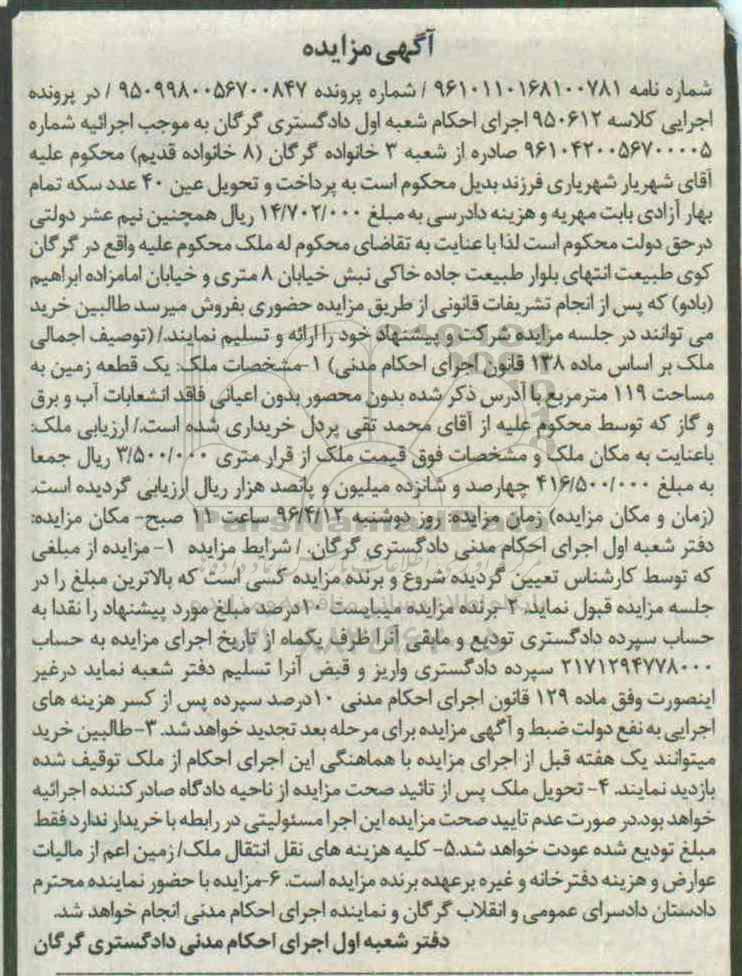 آگهی مزایده
شماره نامه ۹۶۱۰۱۱۰۱۶۸۱۰۰۷۸۱ / شماره پرونده ۹۵۰۹۹۸۰۰۵۶۷۰۰۸۴۷ / در پرونده
اجرایی کلاسه ۹۵۰۶۱۲ اجرای احکام شعبه اول دادگستری گرگان به موجب اجرائیه شماره
۹۶۱۰۴۲۰۰۵۶۷۰۰۰۰۵ صادره از شعبه ۳ خانواده گرگان (۸ خانواده قدیم) محکوم علیه
آقای شهریار شهریاری فرزند بدیل محکوم است به پرداخت و تحویل عین ۴۰ عدد سکه تمام
بهار آزادی بابت مهریه و هزینه دادرسی به مبلغ ۱۴/۷۰۲/۰۰۰ ریال همچنین نیم عشر دولتی
درحق دولت محکوم است لذا با عنایت به تقاضای محکوم له ملک محکوم علیه واقع در گرگان
کوی طبیعت انتهای بلوار طبیعت جاده خاکی نبش خیابان ۸ متری و خیابان امامزاده ابراهیم
(بادو) که پس از انجام تشریفات قانونی از طریق مزایده حضوری بفروش میرسد طالبین خرید
می توانند در جلسه مزایده شرکت و پیشنهاد خود را ارائه و تسلیم نمایند./ (توصیف اجمالی
ملک بر اساس ماده ۱۳۸ قانون اجرای احکام مدنی) ۱-مشخصات ملک: یک قطعه زمین به
مساحت ۱۱۹ مترمربع با آدرس ذکر شده بدون محصور بدون اعیانی فاقد انشعابات آب و برق
و گاز که توسط محکوم علیه از آقای محمد تقی پردل خریداری شده است./ ارزیابی ملک:
باعنایت به مکان ملک و مشخصات فوق قیمت ملک از قرار متری ۳/۵۰۰/۰۰۰ ریال جمعا
به مبلغ ۴۱۶/۵۰۰/۰۰۰ چهارصد و شانزده میلیون و پانصد هزار ریال ارزیابی گردیده است.
(زمان و مکان مزایده) زمان مزایده: روز دوشنبه ۹۶/۴/۱۲ ساعت ۱۱ صبح- مکان مزایده:
دفتر شعبه اول اجرای احکام مدنی دادگستری گرگان. / شرایط مزایده ۱-مزایده از مبلغی
که توسط کارشناس تعیین گردیده شروع و برنده مزایده کسی است که بالاترین مبلغ را در
جلسه مزایده قبول نماید. ۲-برنده مزایده میبایست ۱۰درصد مبلغ مورد پیشنهاد را نقدا به
حساب سپرده دادگستری تودیع و مابقی آنرا ظرف یکماه از تاریخ اجرای مزایده به حساب
۲۱۷۱۲۹۴۷۷۸۰۰۰ سپرده دادگستری واریز و قبض آنرا تسلیم دفتر شعبه نماید درغیر
اینصورت وفق ماده ۱۲۹ قانون اجرای احکام مدنی ۱۰درصد سپرده پس از کسر هزینه های
اجرایی به نفع دولت ضبط و آگهی مزایده برای مرحله بعد تجدید خواهد شد. ۳-طالبین خرید
میتوانند یک هفته قبل از اجرای مزایده با هماهنگی این اجرای احکام از ملک توقیف شده
بازدید نمایند. ۴- تحویل ملک پس از تائید صحت مزایده از ناحیه دادگاه صادر کننده اجرائیه
خواهد بود.در صورت عدم تایید صحت مزایده این اجرا مسئولیتی در رابطه با خریدار ندارد فقط
مبلغ تودیع شده عودت خواهد شد.۵- کلیه هزینه های نقل انتقال ملک/ زمین اعم از مالیات
عوارض و هزینه دفترخانه و غیره برعهده برنده مزایده است. ۶-مزایده با حضور نماینده محترم
دادستان دادسرای عمومی و انقلاب گرگان و نماینده اجرای احکام مدنی انجام خواهد شد.
دفتر شعبه اول اجرای احکام مدنی دادگستری گرگان